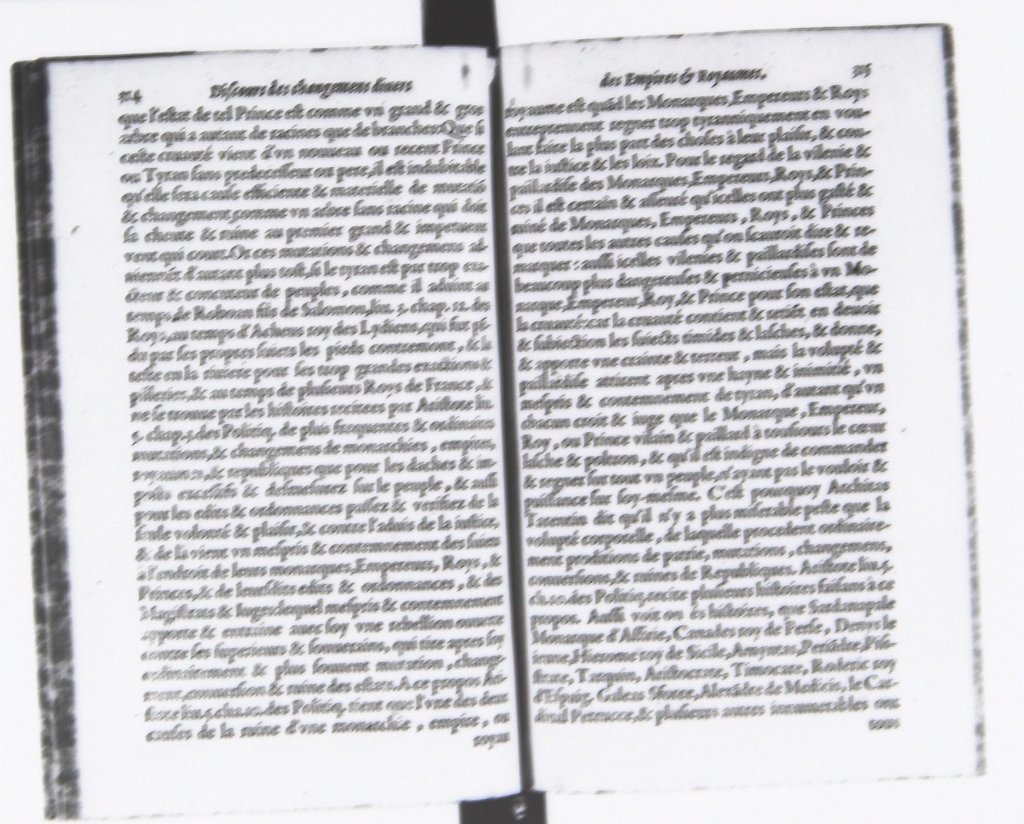 Discours des changemens divers
que l'estat de tel Prince est comme vn grand & gros
arbre qui a autant de racines que de branches. Que si
ceste cruauté vient d'vn nouueau ou recent Prince
ou Tyran sans predecesseur ou pere, il est indubitable
qu'elle sera cause efficiente & materielle de mutatiõ
& changement, comme vn arbre sans racine qui doit
sa cheute & ruine au premier grand & impetueux
vent qui court. Or ces mutations & changemens ad-
uiennẽt d'autant plus tost, si le tyran est par trop exa-
cteur & contenteur de peuples, comme il aduint au
temps de Roboan fils de Salomon, liu. 3. chap. 12. des
Roys, au temps d'Acheus roy des Lydiens, qui fut pẽ-
du par ses propres suiets les pieds contremont, & la
teste en la riuiere pour ses trop grandes exactions &
pilleries, & au temps de plusieurs Roys de France, &
ne se trouue par les histoires recitees par Aristote liu.
5. chap. 5. des Politiq. de plus frequentes & ordinaires
mutations, & changemens de monarchies, empires,
royaumes, & republiques que pour les daches & im-
posts excessifs & desmesurez sur le peuple, & aussi
pour les edits & ordonnances passez & verifiez de la
seule volonté & plaisir, & contre l'aduis de la iustice,
& de là vient vn mespris & contemnement des suiets
à l'endroit de leurs monarques, Empereurs, Roys, &
Princes, & de leursdits edits & ordonnances, & des
Magistrats & Iuges, lequel mespris & contemnement
apporte & entraine auec soy vne rebellion ouuerte
contre les superieurs & souuerains, qui tire apres soy
ordinairement & plus souuent mutation, change-
ment, conuersion & ruine des estats. A ce propos Ari-
stote liu. 5. cha. 10. des Politiq. tient que l'vne des deux
causes de la ruine d'vne monarchie, empire, ou
royau
des Empires & Royaumes. 315
royaume est quãd les Monarques, Empereurs & Roys
entreprennent regner trop tyranniquement en vou-
lant faire la plus part des choses à leur plaisir, & con-
tre la iustice & les loix. Pour le regard de la vilenie &
paillardise des Monarques, Empereurs, Roys, & Prin-
ces il est certain & asseuré qu'icelles ont plus gasté &
ruiné de Monarques, Empereurs, Roys, & Princes
que toutes les autres causes qu'on sçauroit dire & re-
marquer: aussi icelles vilenies & paillardises sont de
beaucoup plus dangereuses & pernicieuses à vn Mo-
narque, Empereur, Roy, & Prince pour son estat, que
la cruauté: car la cruauté contient & retiẽt en deuoir
& subiection les suiects timides & lasches, & donne,
& apporte vne crainte & terreur, mais la volupté &
paillardise attirent apres vne hayne & inimitié, vn
mespris & contemnement de tyran, d'autant qu'vn
chacun croit & iuge que le Monarque, Empereur,
Roy, ou Prince vilain & paillard a tousiours le cœur
lasche & poltron, & qu'il est indigne de commander
& regner sur tout vn peuple, n'ayant pas le vouloir &
puissance sur soy-mesme. C'est pourquoy Architas
Tarentin dit qu'il n'y a plus miserable peste que la
volupté corporelle, de laquelle procedent ordinaire-
ment proditions de patrie, mutations, changemens,
conuersions, & ruines de Republiques. Aristote liu. 5.
cha. 10. des Politiq. recite plusieurs histoires faisans à ce
propos. Aussi voit on és histoires, que Sardanapale
Monarque d'Assirie, Canades roy de Perse, Denys le
ieune, Hierome roy de Sicile, Amyntas, Periãdre, Pisi-
strate, Tarquin, Aristocrate, Timocrate, Roderic roy
d'Espaig. Galeas Sforce, Alexãdre de Medicis, le Car-
dinal Petrucce, & plusieurs autres innumerables ont
tous